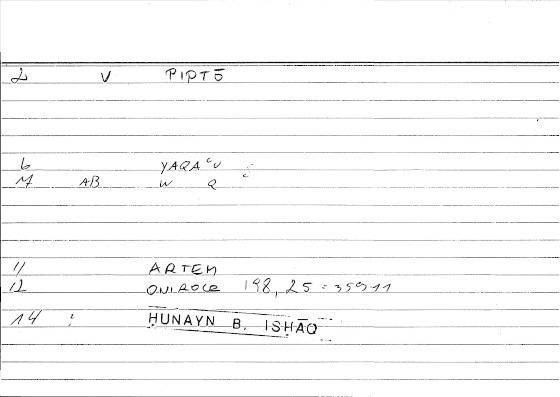 2 V PIPTŌ
6 YAQAʿU
M AB W Q
11 ARTEM
12 ONIROCR 198, 25 = 359 11
14 : ḤUNAYN B. ISḤĀQ